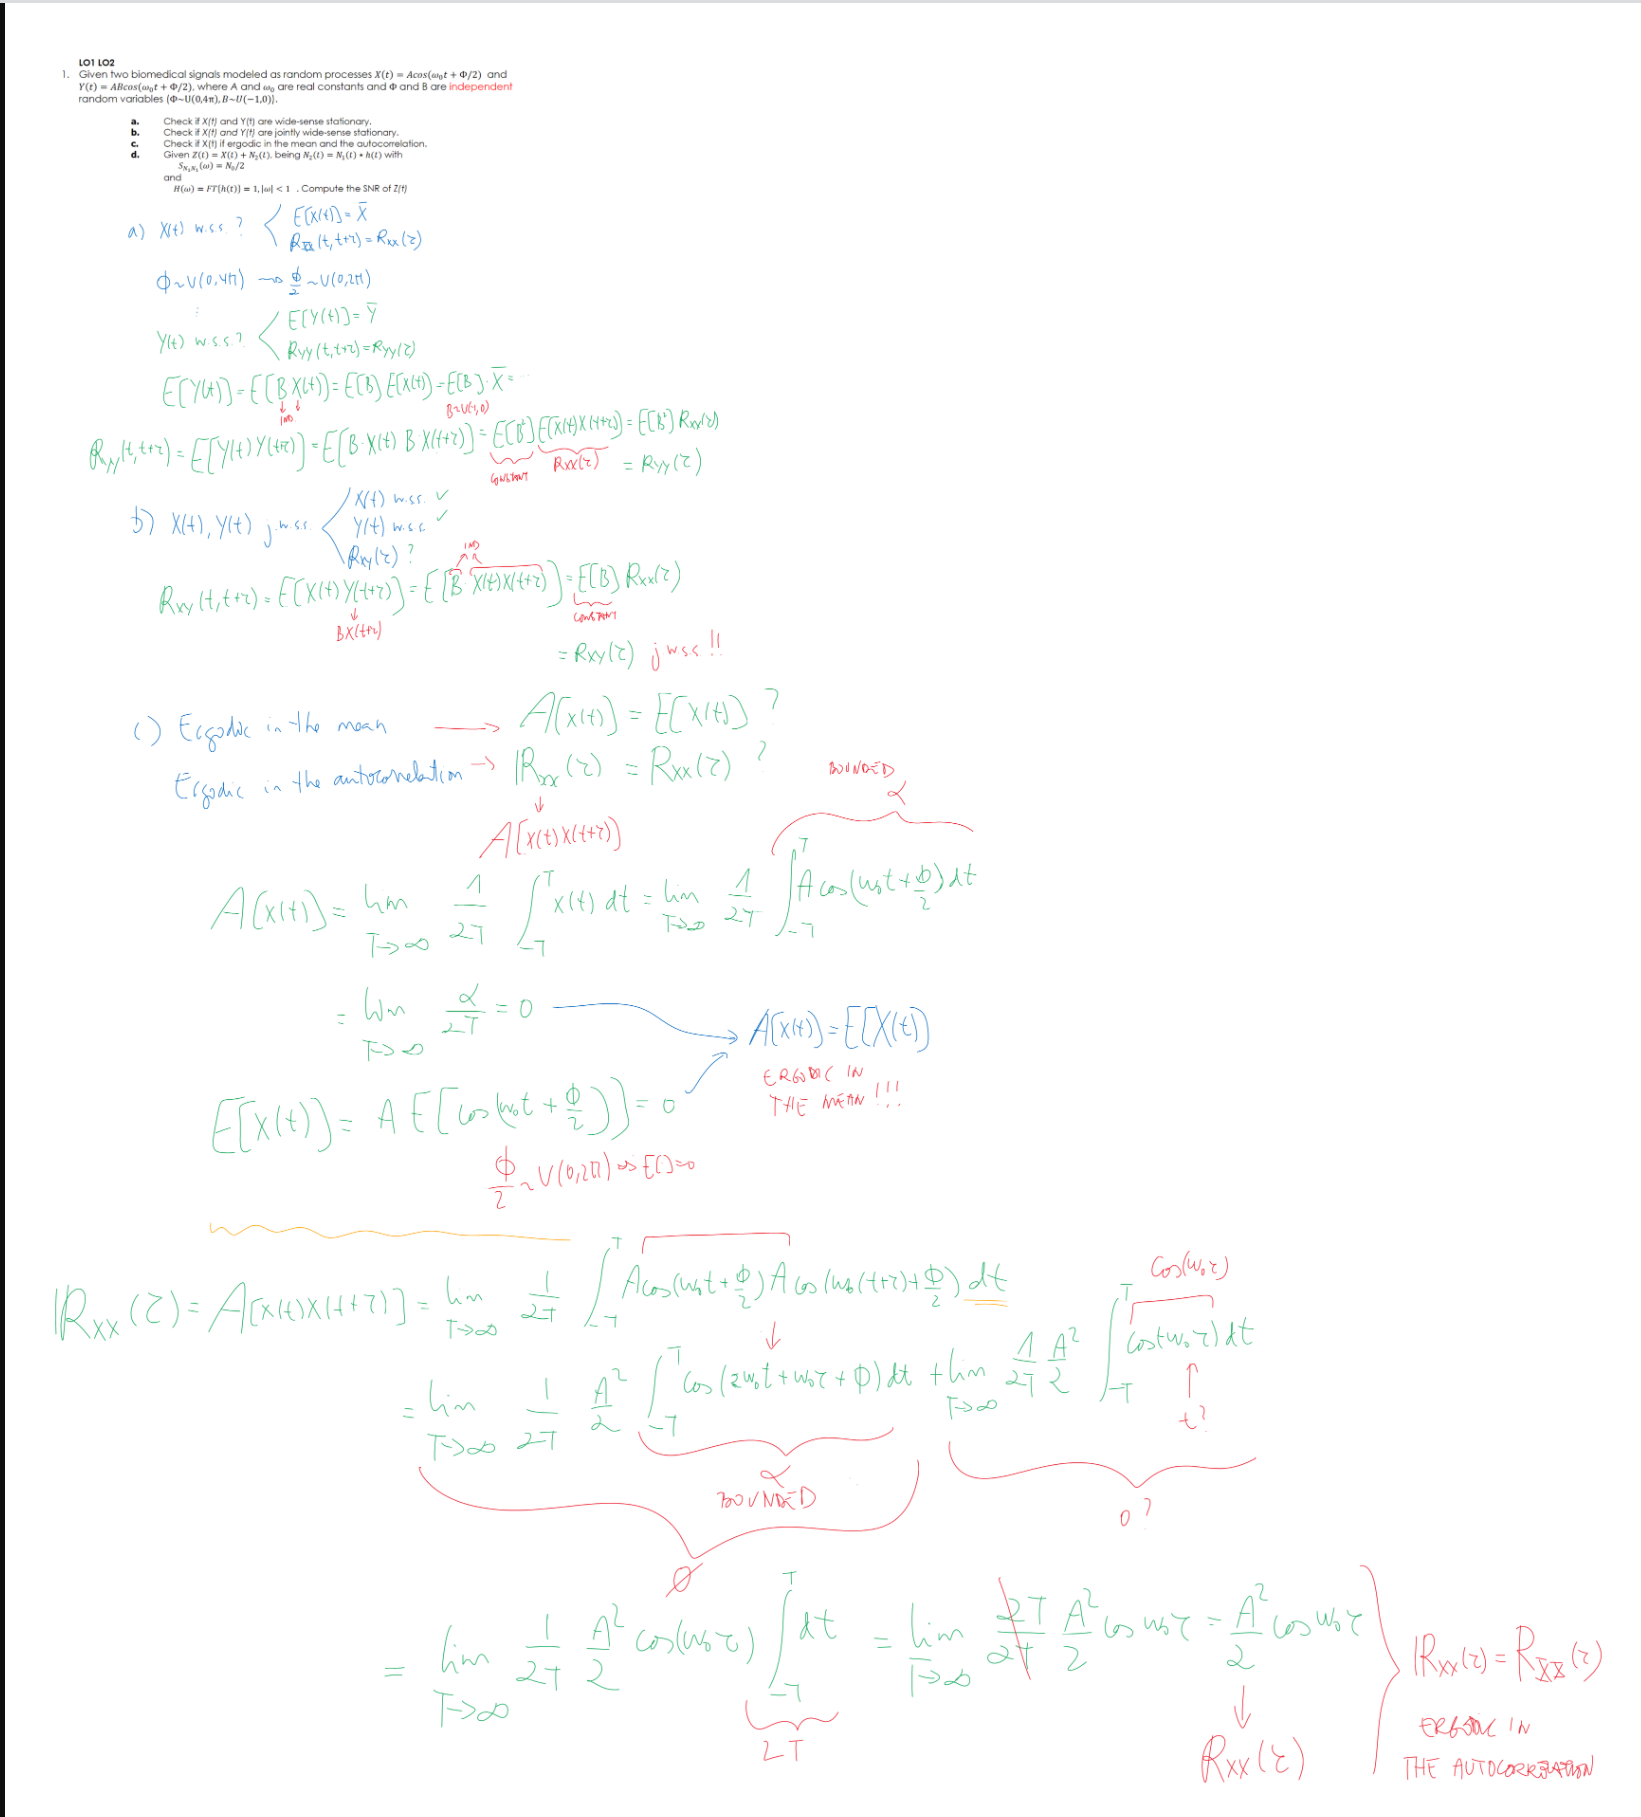 LO1 LO2
1. Given two biomedical signals modeled as random processes X(t) = Acos(ω₀t + Φ/2) and
Y(t) = ABcos(ω₀t + Φ/2), where A and ω₀ are real constants and Φ and B are independent
random variables {Φ~U(0,4π), B~U(−1,0)}.
a. Check if X(t) and Y(t) are wide-sense stationary.
b. Check if X(t) and Y(t) are jointly wide-sense stationary.
c. Check if X(t) if ergodic in the mean and the autocorrelation.
d. Given Z(t) = X(t) + N₂(t), being N₂(t) = N₁(t) * h(t) with
S_N₁N₁(ω) = N₀/2
and
H(ω) = FT{h(t)} = 1, |ω| < 1 . Compute the SNR of Z(t)
a) X(t) w.s.s. ? E[X(t)] = X̄
R_XX(t,t+τ) = R_XX(τ)
ϕ~U(0,4π) → ϕ/2 ~U(0,2π)
⋮
Y(t) w.s.s.? E[Y(t)] = Ȳ
R_YY(t,t+τ) = R_YY(τ)
E[Y(t)] = E[B X(t)] = E[B] E[X(t)] = E[B]·X̄ = ...
IND
B~U(-1,0)
R_YY(t,t+τ) = E[Y(t) Y(t+τ)] = E[B·X(t) B X(t+τ)] = E[B²] E[X(t)X(t+τ)] = E[B²] R_XX(τ)
CONSTANT R_XX(τ) = R_YY(τ)
b) X(t), Y(t) j.w.s.s. X(t) w.s.s. ✓
Y(t) w.s.s. ✓
R_XY(τ) ?
IND
R_XY(t,t+τ) = E[X(t) Y(t+τ)] = E[B X(t)X(t+τ)] = E[B] R_XX(τ)
BX(t+τ)
CONSTANT
= R_XY(τ) j w.s.s. !!
c) Ergodic in the mean → A[x(t)] = E[X(t)] ?
Ergodic in the autocorrelation → ℝ_XX(τ) = R_XX(τ) ?
A[x(t)x(t+τ)]
BOUNDED
α
A[x(t)] = lim T→∞ 1/2T ∫_-T^T x(t) dt = lim T→∞ 1/2T ∫_-T^T A cos(ω₀t + ϕ/2) dt
= lim T→∞ α/2T = 0
A[x(t)] = E[X(t)]
ERGODIC IN
THE MEAN !!!
E[X(t)] = A E[cos(ω₀t + ϕ/2)] = 0
ϕ/2 ~ U(0,2π) ⇒ E[]=0
ℝ_XX(τ) = A[x(t)x(t+τ)] = lim T→∞ 1/2T ∫_-T^T A cos(ω₀t + ϕ/2) A cos(ω₀(t+τ) + ϕ/2) dt
cos(ω₀τ)
= lim T→∞ 1/2T A²/2 ∫_-T^T cos(2ω₀t + ω₀τ + ϕ) dt + lim T→∞ 1/2T A²/2 ∫_-T^T cos(-ω₀τ) dt
t?
α
BOUNDED
0 ?
0
= lim T→∞ 1/2T A²/2 cos(ω₀τ) ∫_-T^T dt = lim T→∞ 2T/2T A²/2 cos ω₀τ = A²/2 cos ω₀τ
2T
R_XX(τ)
ℝ_XX(τ) = R_XX(τ)
ERGODIC IN
THE AUTOCORRELATION